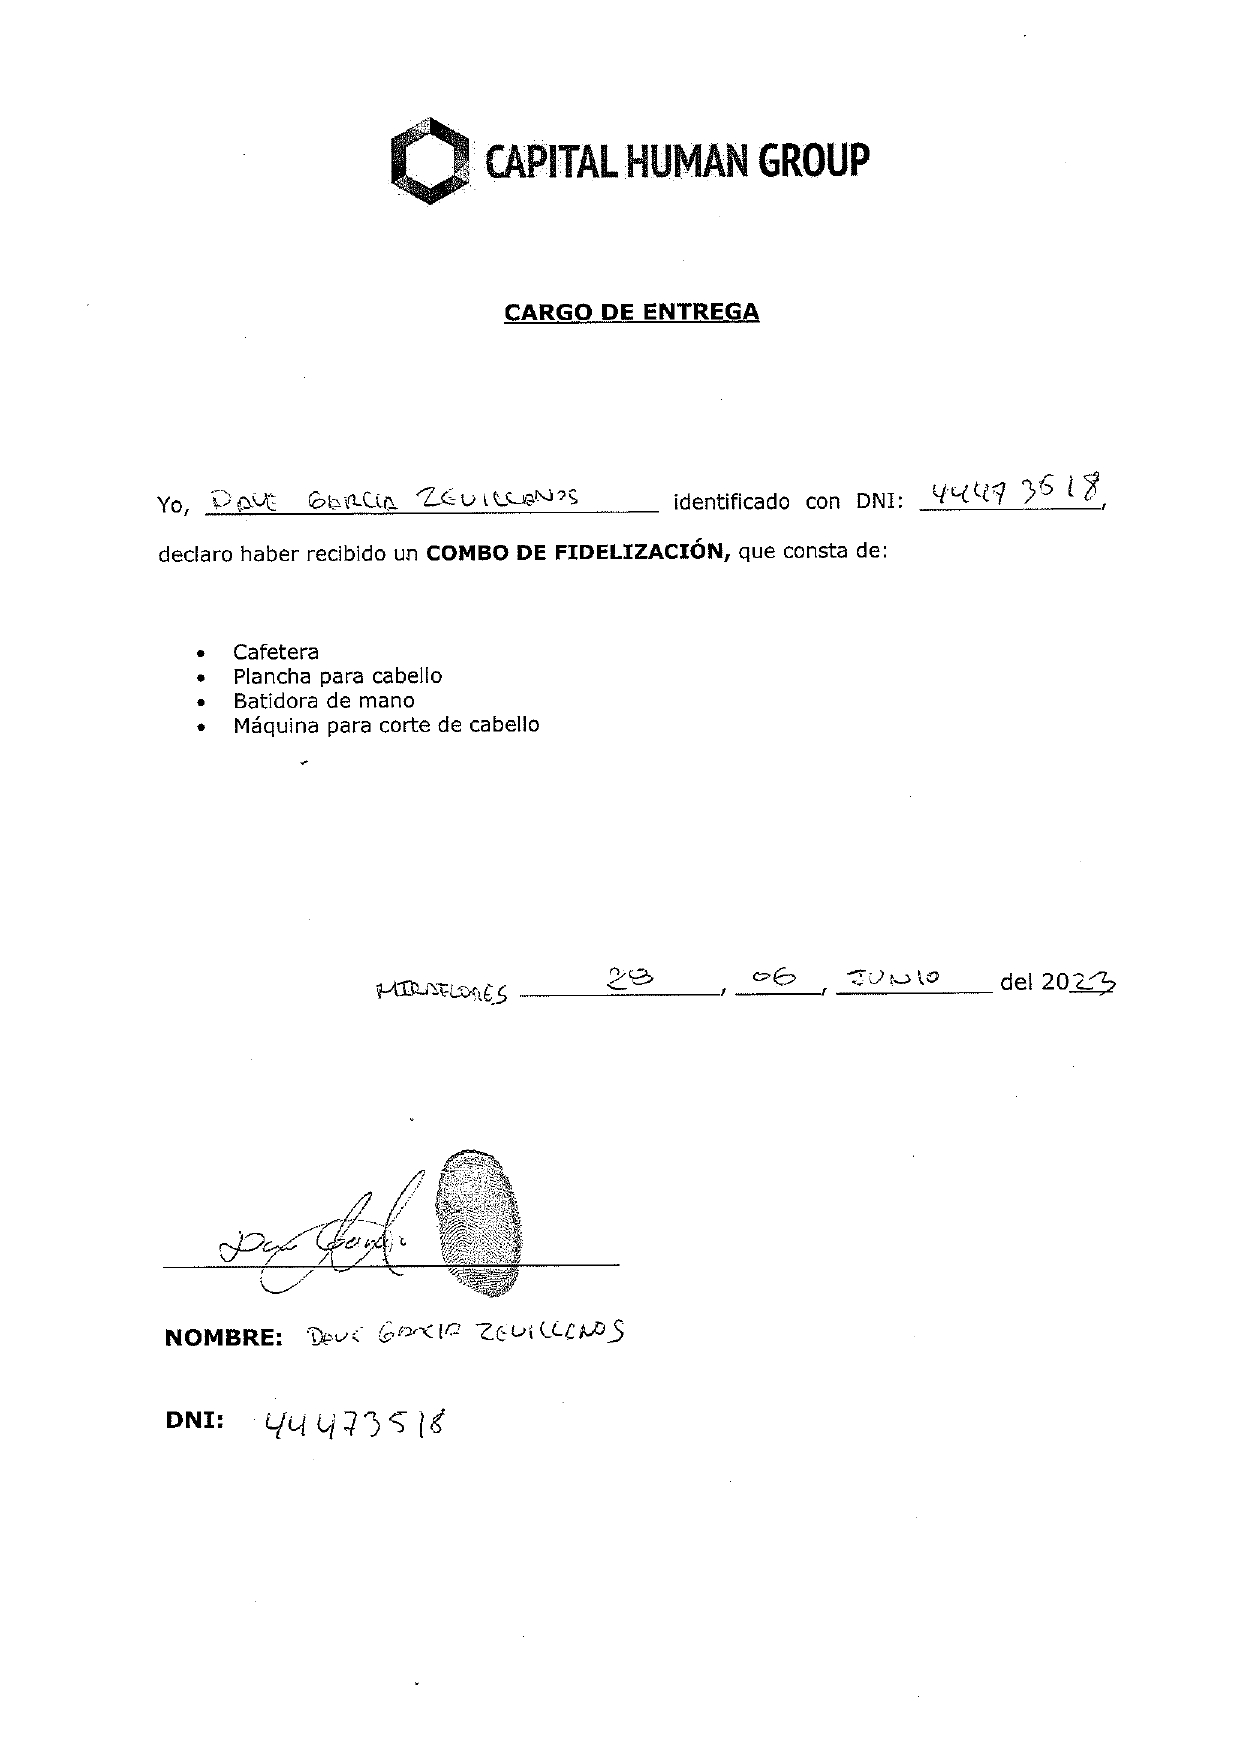 CAPITAL HUMAN GROUP
CARGO DE ENTREGA
Yo, Dave Garcia Zevillanos identificado con DNI: 44473518,
declaro haber recibido un COMBO DE FIDELIZACIÓN, que consta de:
• Cafetera
• Plancha para cabello
• Batidora de mano
• Máquina para corte de cabello
MIRAFLORES 23, 06, JUNIO del 2023
NOMBRE: Dave Garcia Zevillanos
DNI: 44473518